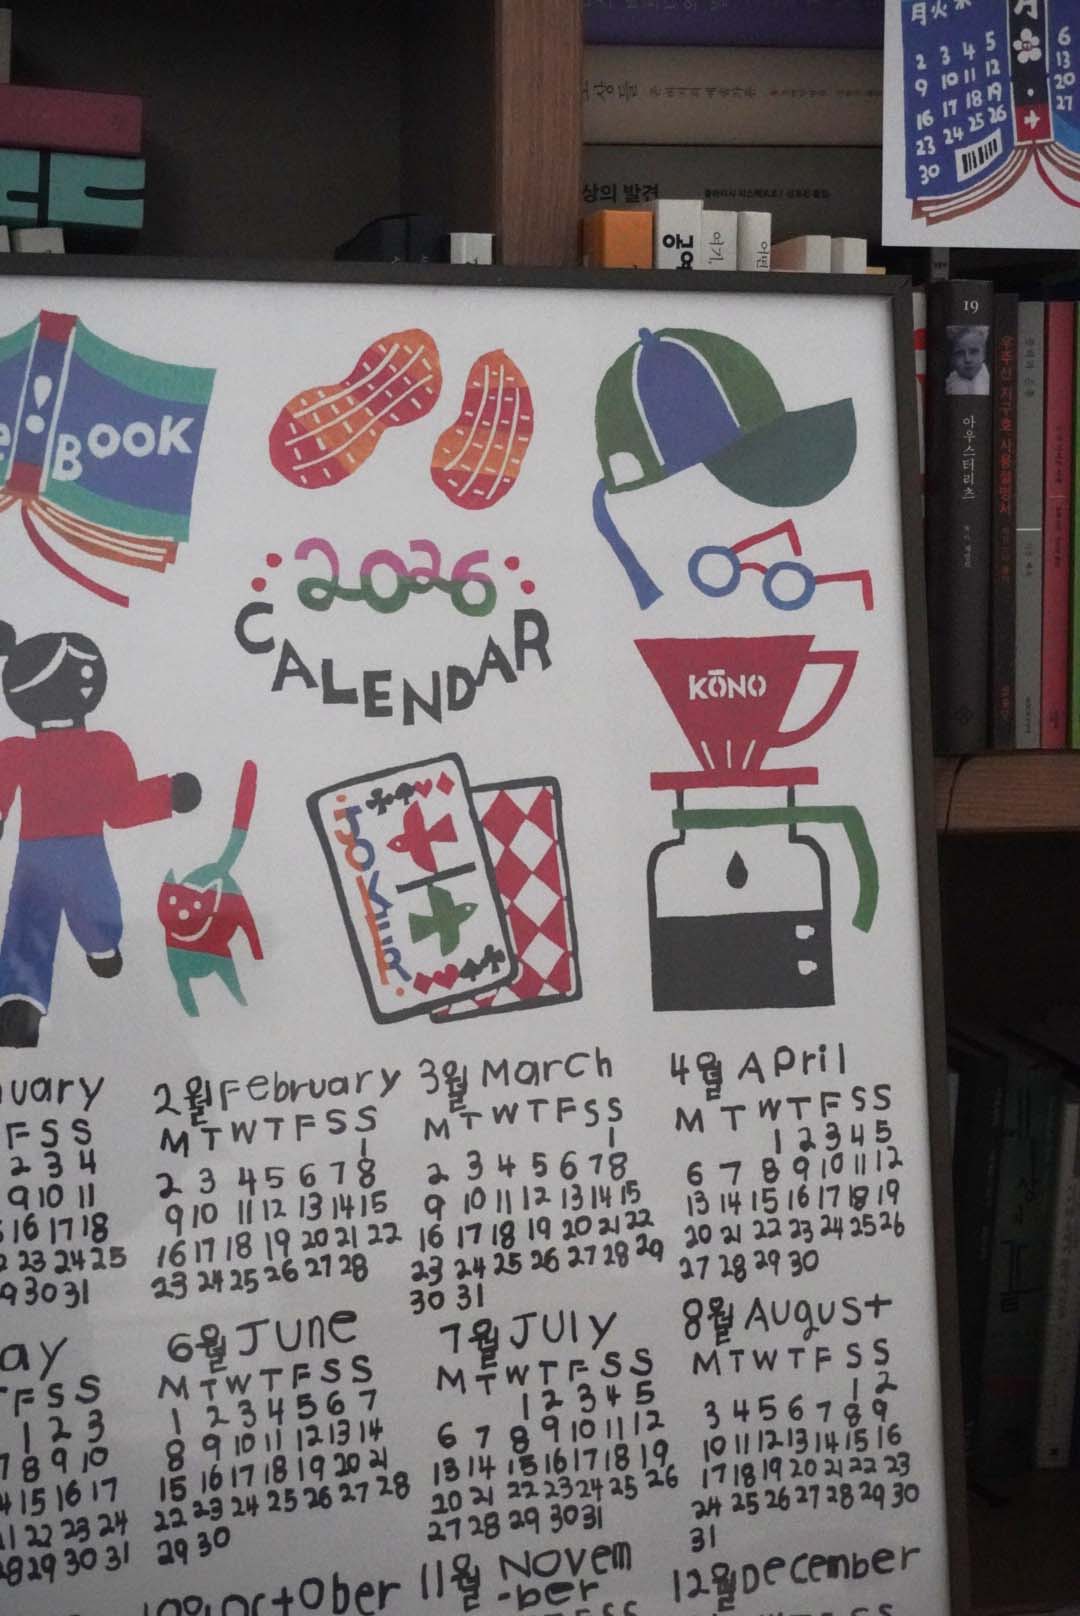 月火木
2 3 4 5
9 10 11 12
16 17 18 19
23 24 25 26
30
月
6
13
20
27
상의 발견
19
아우스터리츠
우주선 지구호 사용설명서
여기,
어떤
BOOK
2026
CALENDAR
KŌNO
JOKER
uary
F S S
2 3 4
9 10 11
16 17 18
23 24 25
30 31
2월 February
M T W T F S S
1
2 3 4 5 6 7 8
9 10 11 12 13 14 15
16 17 18 19 20 21 22
23 24 25 26 27 28
3월 March
M T W T F S S
1
2 3 4 5 6 7 8
9 10 11 12 13 14 15
16 17 18 19 20 21 22
23 24 25 26 27 28 29
30 31
4월 April
M T W T F S S
1 2 3 4 5
6 7 8 9 10 11 12
13 14 15 16 17 18 19
20 21 22 23 24 25 26
27 28 29 30
ay
T F S S
1 2 3
7 8 9 10
15 16 17
22 23 24
28 29 30 31
6월 June
M T W T F S S
1 2 3 4 5 6 7
8 9 10 11 12 13 14
15 16 17 18 19 20 21
22 23 24 25 26 27 28
29 30
7월 July
M T W T F S S
1 2 3 4 5
6 7 8 9 10 11 12
13 14 15 16 17 18 19
20 21 22 23 24 25 26
27 28 29 30 31
8월 August
M T W T F S S
1 2
3 4 5 6 7 8 9
10 11 12 13 14 15 16
17 18 19 20 21 22 23
24 25 26 27 28 29 30
31
October
11월 Novem
-ber
12월 December